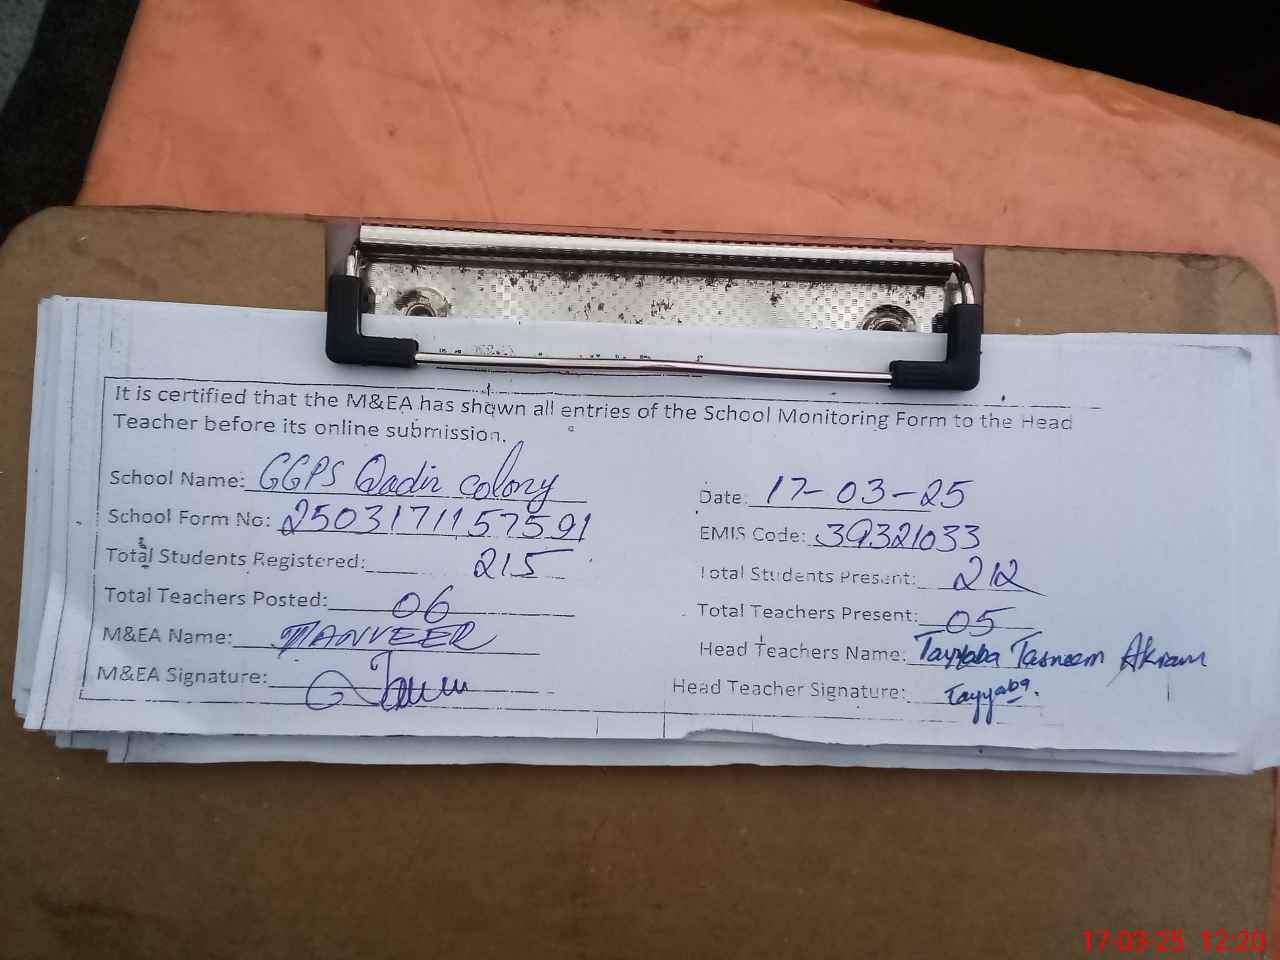 It is certified that the M&EA has shown all entries of the School Monitoring Form to the Head
Teacher before its online submission.
School Name: GGPS Qadir colony
Date: 17-03-25
School Form No: 2503171157591
EMIS Code: 39321033
Total Students Registered: 215
Total Students Present: 212
Total Teachers Posted: 06
Total Teachers Present: 05
M&EA Name: TANVEER
Head Teachers Name: Tayyaba Tasneem Akram
M&EA Signature:
Head Teacher Signature: Tayyaba.
17-03-25 12:20